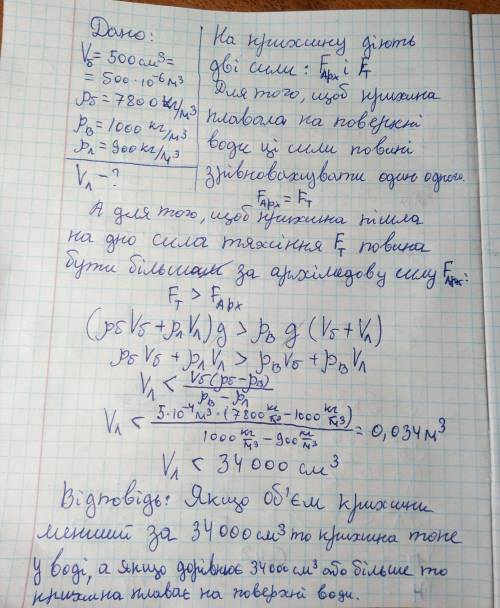 Дано:
V₅ = 500 см³ =
= 500·10⁻⁶ м³
ρ₅ = 7800 кг/м³
ρв = 1000 кг/м³
ρл = 900 кг/м³
Vл - ?
На крижину діють
дві сили: Fарх і Fт
Для того, щоб крижина
плавала на поверхні
води ці сили повині
зрівноважувати один одного.
Fарх = Fт
А для того, щоб крижина пішла
на дно сила тяжіння Fт повина
бути більшою за архімедову силу Fарх:
Fт > Fарх
(ρ₅V₅ + ρлVл)g > ρв g (V₅ + Vл)
ρ₅V₅ + ρлVл > ρвV₅ + ρвVл
Vл < V₅(ρ₅ - ρв) / ρв - ρл
Vл < 5·10⁻⁴м³·(7800 кг/м³ - 1000 кг/м³) / 1000 кг/м³ - 900 кг/м³ = 0,034 м³
Vл < 34 000 см³
Відповідь: Якщо об'єм крижини
менший за 34 000 см³ то крижина тоне
у воді, а якщо дорівнює 34000 см³ або більше то
крижина плаває на поверхні води.